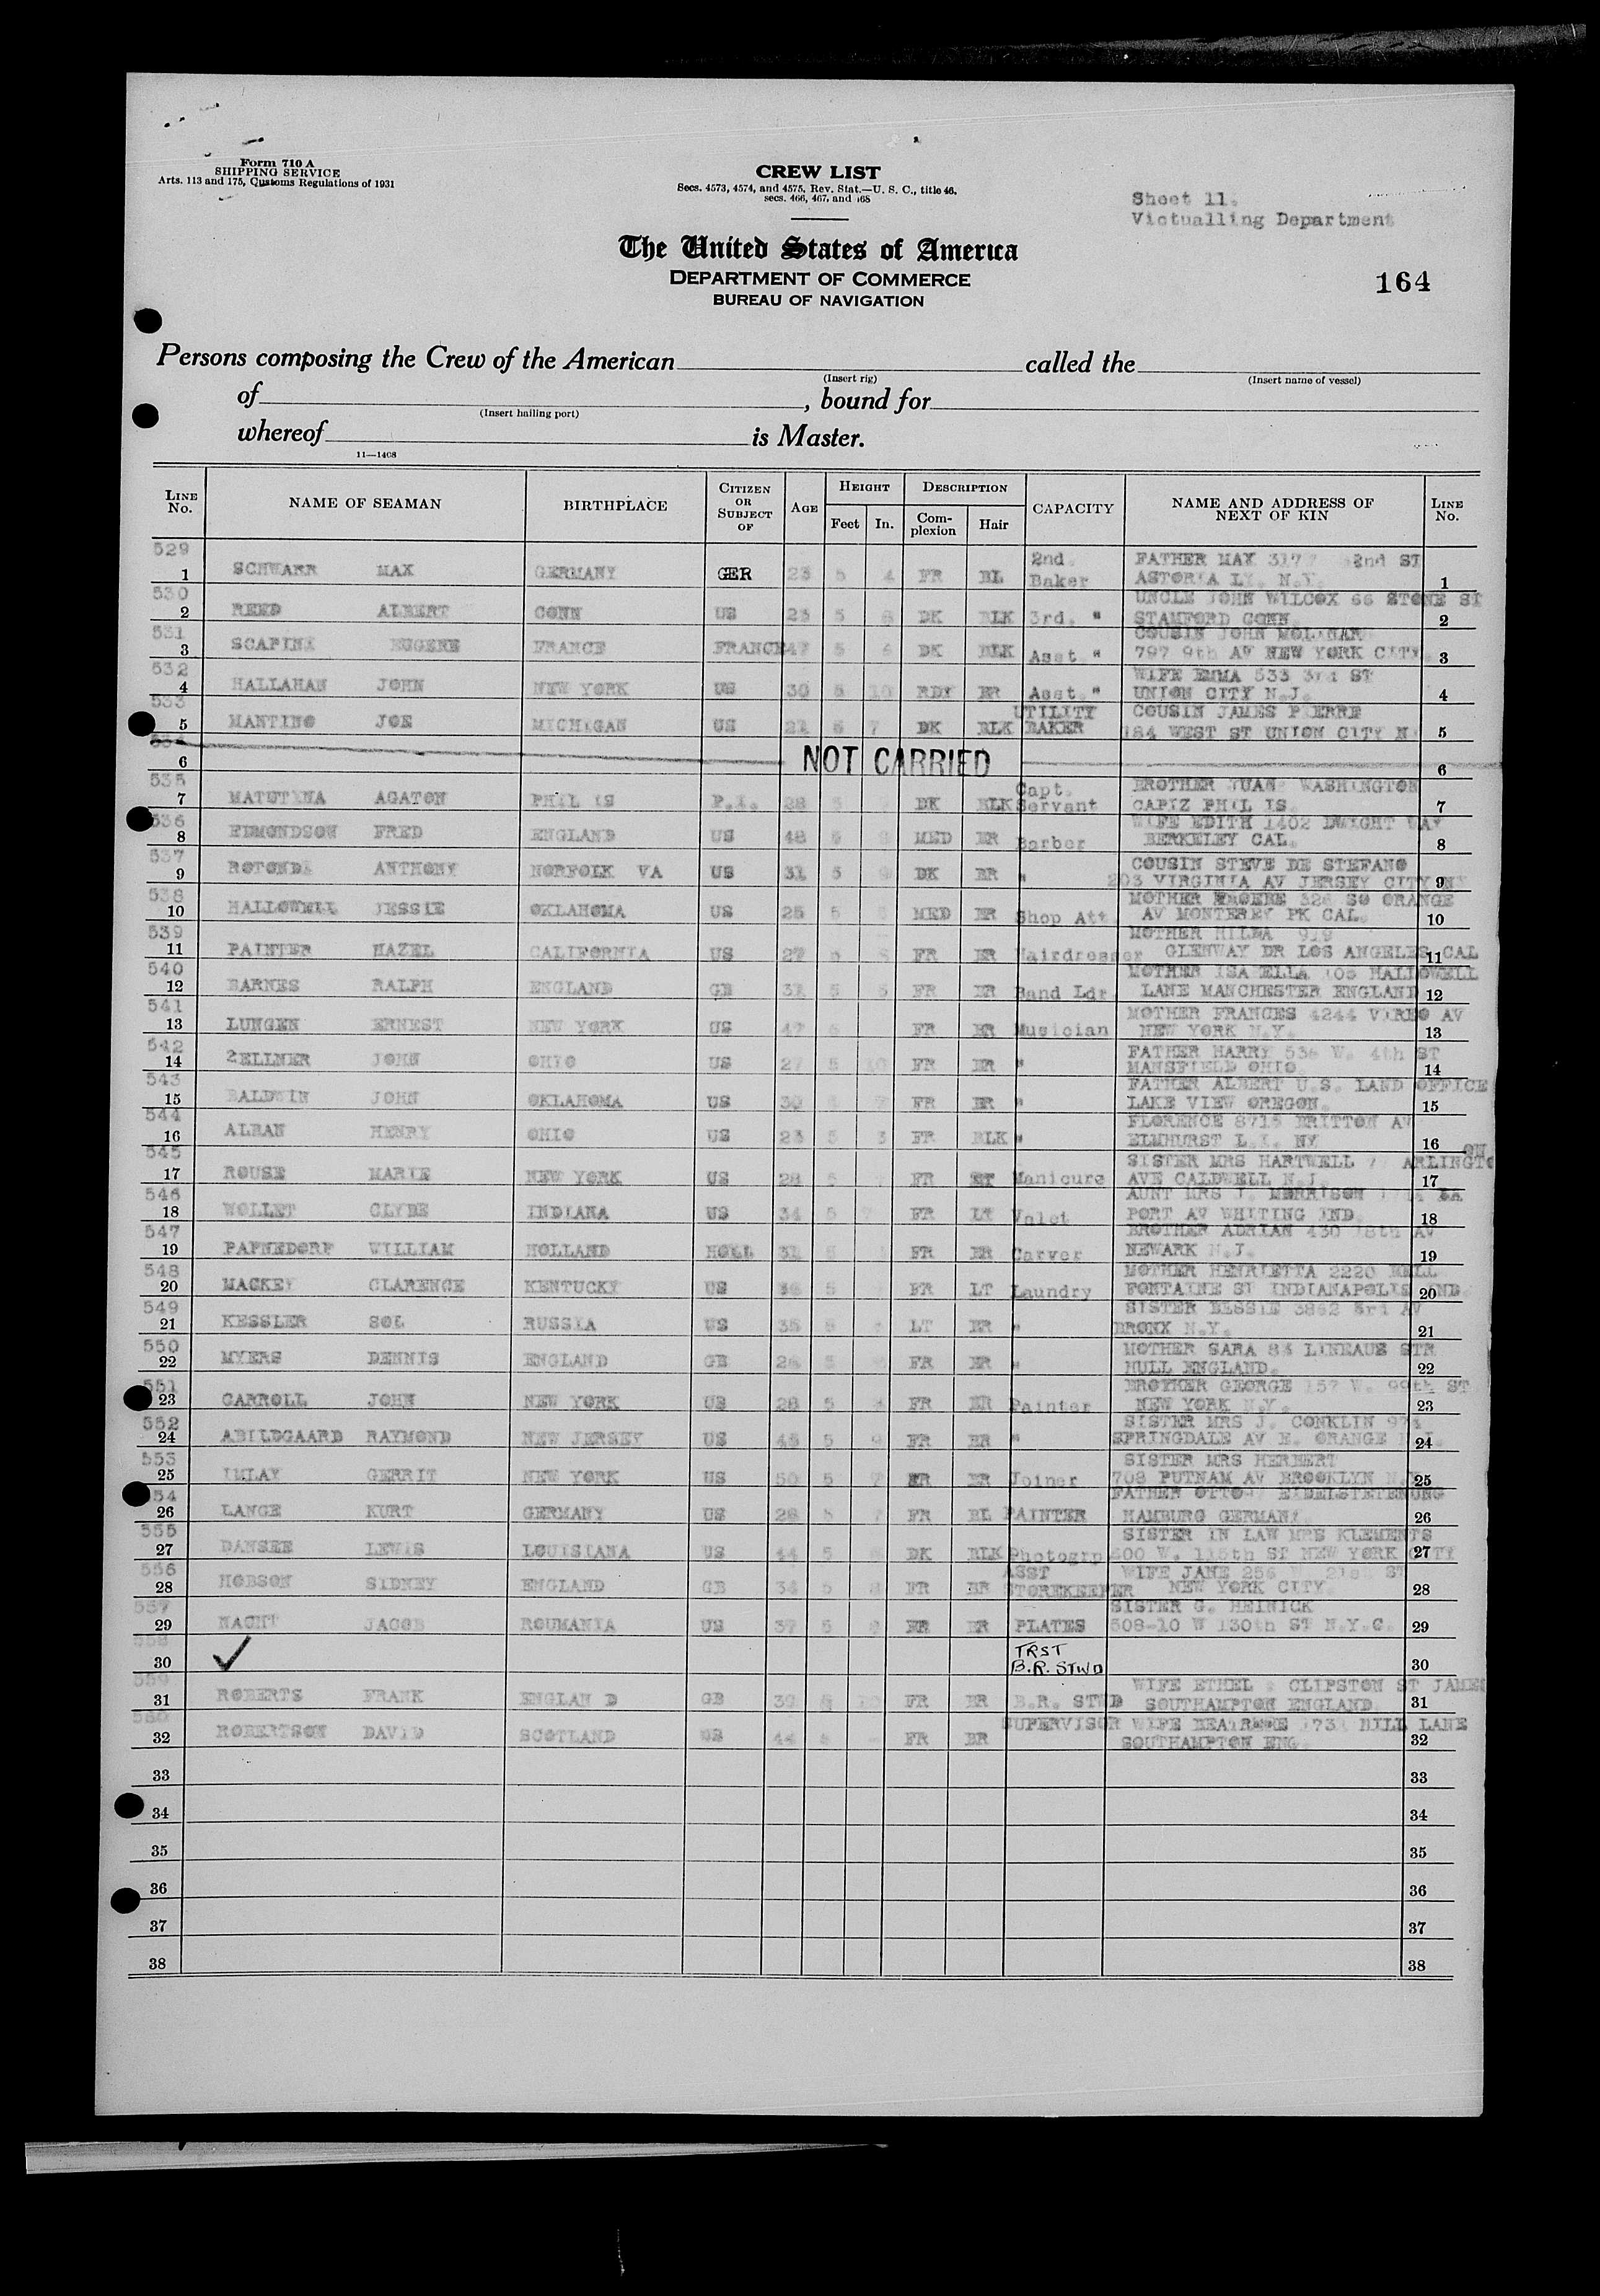 Form 710 A
SHIPPING SERVICE
Arts. 113 and 175, Customs Regulations of 1931
CREW LIST
Secs. 4573, 4574, and 4575, Rev. Stat.—U. S. C., title 46,
secs. 466, 467, and 468
Sheet 11.
Victualling Department
The United States of America
DEPARTMENT OF COMMERCE
BUREAU OF NAVIGATION
164
Persons composing the Crew of the American called the
(Insert rig) (Insert name of vessel)
of , bound for
(Insert hailing port)
whereof is Master.
11—1408
LINE No. NAME OF SEAMAN BIRTHPLACE CITIZEN OR SUBJECT OF AGE HEIGHT Feet In. DESCRIPTION Complexion Hair CAPACITY NAME AND ADDRESS OF NEXT OF KIN LINE No.
529 2nd. FATHER MAX ST
1 SCHWARR MAX GERMANY GER 23 5 4 FR BL Baker ASTORIA LI. N.Y. 1
530 UNCLE JOHN WILCOX 66 STONE ST
2 REED ALBERT CONN US 23 5 DK BLK 3rd. " STAMFORD CONN. 2
531 COUSIN JOHN
3 EUGENE FRANCE FRANCE 47 5 DK BLK Asst. " 797 9th AV NEW YORK CITY 3
532 WIFE EMMA 533 3rd ST
4 HALLAHAN JOHN NEW YORK US 30 5 10 RDY BR Asst. " UNION CITY N.J. 4
533 UTILITY COUSIN JAMES PIERRE
5 MANTINO JOE MICHIGAN US 21 5 7 DK BLK BAKER 184 WEST ST UNION CITY N 5
6 NOT CARRIED 6
535 Capt. BROTHER JUAN WASHINGTON
7 MATUTINA AGATON PHIL IS P.I. 28 5 DK BLK Servant CAPIZ PHIL IS. 7
536 WIFE EDITH 1402 DWIGHT WAY
8 EDMONDSON FRED ENGLAND US 48 5 MED BR Barber BERKELEY CAL. 8
537 COUSIN STEVE DE STEFANO
9 ROTONDA ANTHONY NORFOLK VA US 31 5 DK BR " 203 VIRGINIA AV JERSEY CITY 9
538 MOTHER 326 SO ORANGE
10 HALLOWELL JESSIE OKLAHOMA US 25 5 MED BR Shop Att AV MONTEREY PK CAL. 10
539 MOTHER HILDA 919
11 PAINTER HAZEL CALIFORNIA US 27 5 FR BR Hairdresser GLENWAY DR LOS ANGELES CAL 11
540 MOTHER ISABELLA 105 HALLOWELL
12 BARNES RALPH ENGLAND GB 31 5 FR BR Band Ldr LANE MANCHESTER ENGLAND 12
541 MOTHER FRANCES 4244 VIREO AV
13 LUNGEN ERNEST NEW YORK US 47 FR BR Musician NEW YORK N.Y. 13
542 FATHER HARRY 536 W. 4th ST
14 ZELLNER JOHN OHIO US 27 5 10 FR BR " MANSFIELD OHIO 14
543 FATHER ALBERT U.S. LAND OFFICE
15 BALDWIN JOHN OKLAHOMA US 30 FR BR " LAKE VIEW OREGON. 15
544 FLORENCE 8715 BRITTON AV
16 ALBAN HENRY OHIO US 23 5 3 FR BLK " ELMHURST L.I. NY 16
545 SISTER MRS HARTWELL ARLINGTON
17 ROUSE MARIE NEW YORK US 28 5 FR Manicure AVE CALDWELL N.J. 17
546 AUNT MRS MORRISON
18 WOLLET CLYDE INDIANA US 34 5 FR LT Valet PORT AV WHITING IND. 18
547 BROTHER ADRIAN 430 18th AV
19 PAPNEDORF WILLIAM HOLLAND HOLL 31 FR BR Carver NEWARK N.J. 19
548 MOTHER HENRIETTA 2220 BELL
20 MACKEY CLARENCE KENTUCKY US 36 5 FR LT Laundry FONTAINE ST INDIANAPOLIS IND. 20
549 SISTER BESSIE 3862 3rd AV
21 KESSLER SOL RUSSIA US 35 5 LT BR " BRONX N.Y. 21
550 MOTHER SARA LINEAUS STR
22 MYERS DENNIS ENGLAND GB 26 5 FR BR " HULL ENGLAND. 22
551 BROTHER GEORGE 157 W. 99th ST
23 CARROLL JOHN NEW YORK US 28 5 FR BR Painter NEW YORK N.Y. 23
552 SISTER MRS J. CONKLIN
24 ABILDGAARD RAYMOND NEW JERSEY US 45 5 9 FR BR " SPRINGDALE AV E. ORANGE 24
553 SISTER MRS HERBERT
25 IMLAY GERRIT NEW YORK US 50 5 7 FR BR Joiner 708 PUTNAM AV BROOKLYN N. 25
554 FATHER OTTO
26 LANGE KURT GERMANY US 28 5 7 FR BL PAINTER HAMBURG GERMANY. 26
555 SISTER IN LAW MRS KLEMENTS
27 DANSEE LEWIS LOUISIANA US 44 5 DK BLK Photogrp 600 W. 115th ST NEW YORK CITY 27
556 ASST WIFE JANE 256 ST
28 HOBSON SIDNEY ENGLAND GB 34 5 8 FR BR STOREKEEPER NEW YORK CITY. 28
557 SISTER G. HEINICK
29 NACHT JACOB ROUMANIA US 37 5 FR BR PLATES 508-10 W 130th ST N.Y.C. 29
558 TRST
30 ✓ B.R. STWD 30
559 WIFE ETHEL CLIPSTON ST JAMES
31 ROBERTS FRANK ENGLAN D GB 39 5 10 FR BR B.R. STWD SOUTHAMPTON ENGLAND. 31
560 SUPERVISOR WIFE BEATRICE HILL LANE
32 ROBERTSON DAVID SCOTLAND US 44 5 FR BR SOUTHAMPTON ENG. 32
33 33
34 34
35 35
36 36
37 37
38 38